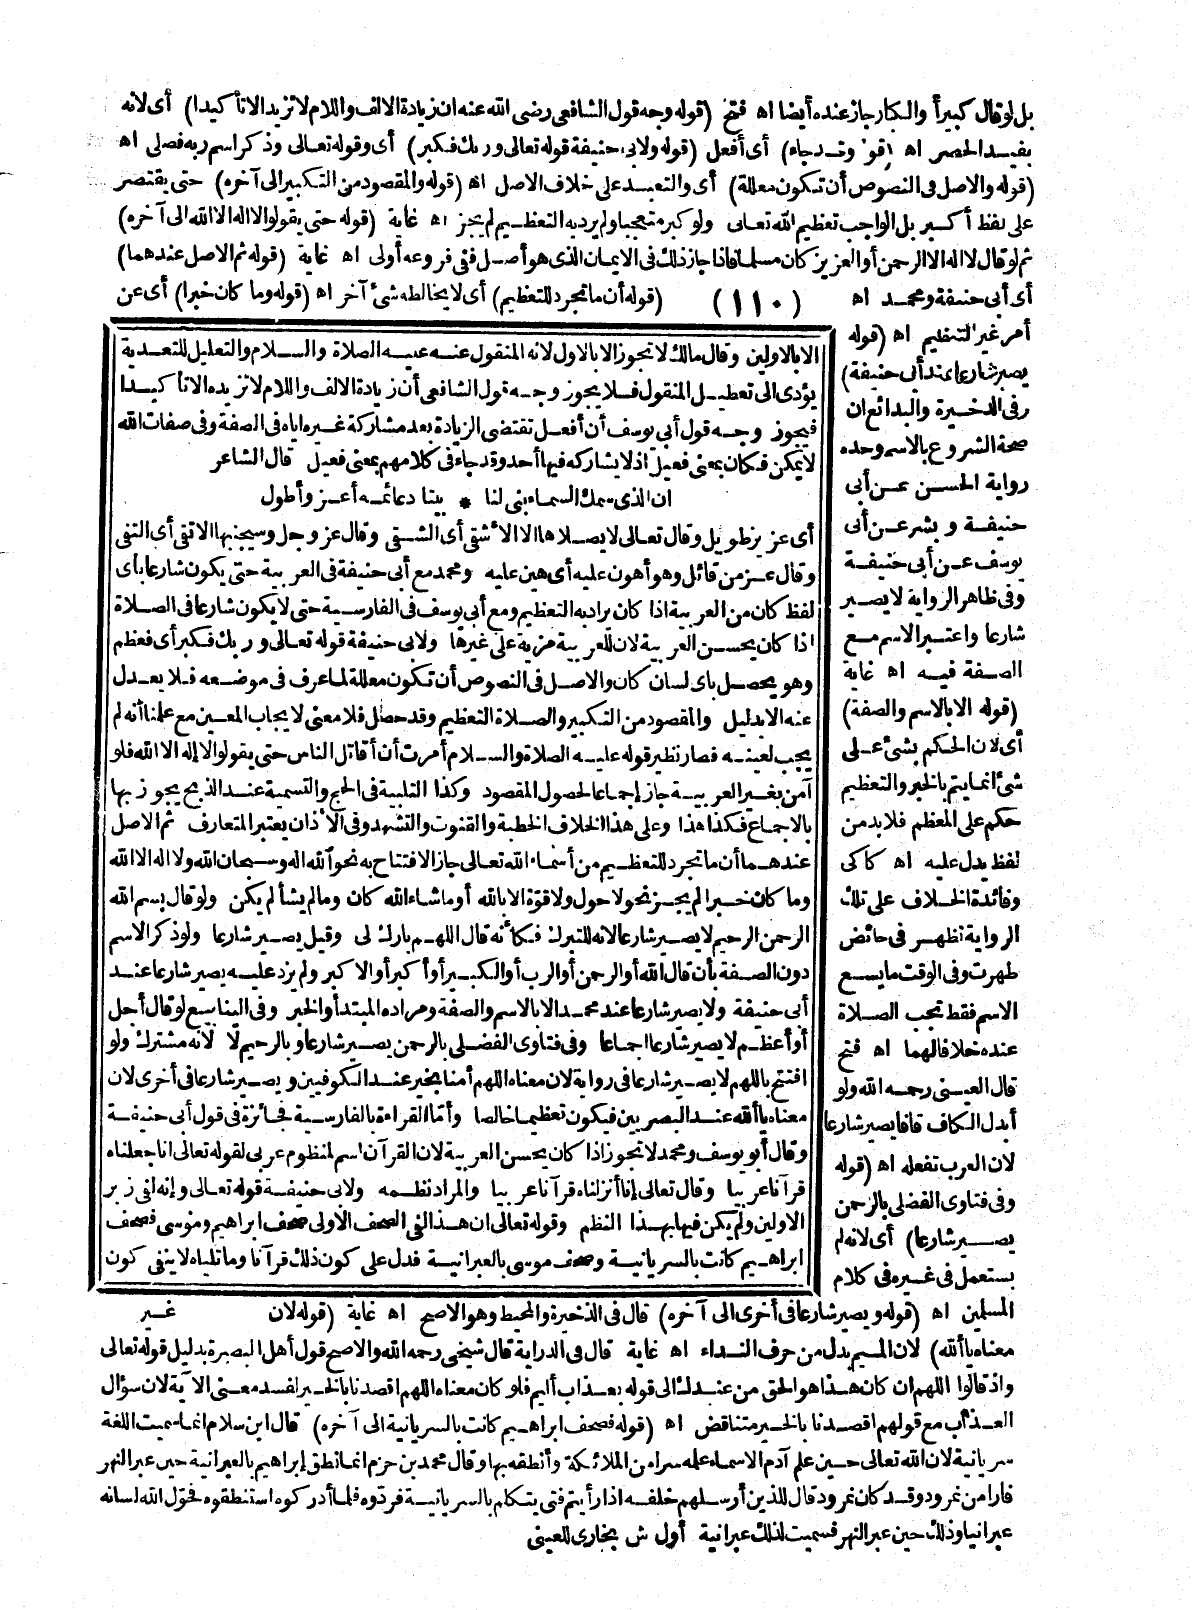 بل لو قال كبيرا والكبار جاز عنده أيضا اه فتح (قوله وجه قول الشافعى رضى الله عنه ان زيادة الالف واللام لا تزيد الا تأكيدا) أى لانه
يفيد الحصر اه (قو وقد جاء) أى أفعل (قوله ولابى حنيفة قوله تعالى وربك فكبر) أى وقوله تعالى وذكر اسم ربه فصلى اه
(قوله والاصل فى النصوص أن تكون معللة) أى والتعبد على خلاف الاصل اه (قوله والمقصود من التكبير الى آخره) حتى يقتصر
على لفظ أكبر بل الواجب تعظيم الله تعالى ولو كبر متعجبا ولم يرد به التعظيم لم يجز اه غاية (قوله حتى يقولوا لا اله الا الله الى آخره)
ثم لو قال لا اله الا الرحمن أو العزيز كان مسلما فاذا جاز ذلك فى الايمان الذى هو أصل ففى فروعه أولى اه غاية (قوله ثم الاصل عندهما)
أى أبى حنيفة ومحمد اه (١١٠) (قوله أن ما تجرد للتعظيم) أى لا يخالطه شئ آخر اه (قوله وما كان خبرا) أى عن
أمر غير التعظيم اه (قوله
يصير شارعا عند أبى حنيفة)
وفى الذخيرة والبدائع ان
صحة الشروع بالاسم وحده
رواية الحسن عن أبى
حنيفة وبشر عن أبى
يوسف عن أبى حنيفة
وفى ظاهر الرواية لا يصير
شارعا واعتبر الاسم مع
الصفة فيه اه غاية
(قوله الا بالاسم والصفة)
أى لان الحكم بشئ على
شئ انما يتم بالخبر والتعظيم
حكم على المعظم فلا بد من
لفظ يدل عليه اه كاكى
وفائدة الخلاف على تلك
الرواية تظهر فى حائض
طهرت وفى الوقت ما يسع
الاسم فقط تجب الصلاة
عنده خلافا لهما اه فتح
قال العينى رحمه الله ولو
أبدل الكاف قافا يصير شارعا
لان العرب تفعله اه (قوله
وفى فتاوى الفضلى بالرحمن
يصير شارعا) أى لانه لم
يستعمل فى غيره فى كلام
الا بالاولين وقال مالك لا تجوز الا بالاول لانه المنقول عنه عليه الصلاة والسلام والتعليل للتعدية
يؤدى الى تعطيل المنقول فلا يجوز وجه قول الشافعى أن زيادة الالف واللام لا تزيده الا تأكيدا
فيجوز وجه قول أبى يوسف أن أفعل تقتضى الزيادة بعد مشاركة غيره اياه فى الصفة وفى صفات الله
لا يمكن فكان بمعنى فعيل اذ لا يشاركه فيها أحد وقد جاء فى كلامهم بمعنى فعيل قال الشاعر
ان الذى سمك السماء بنى لنا * بيتا دعائمه أعز وأطول
أى عزيز طويل وقال تعالى لا يصلاها الا الأشقى أى الشقى وقال عز وجل وسيجنبها الاتقى أى التقى
وقال عز من قائل وهو أهون عليه أى هين عليه ومحمد مع أبى حنيفة فى العربية حتى يكون شارعا بأى
لفظ كان من العربية اذا كان يراد به التعظيم ومع أبى يوسف فى الفارسية حتى لا يكون شارعا فى الصلاة
اذا كان يحسن العربية لان للعربية مزية على غيرها ولابى حنيفة قوله تعالى وربك فكبر أى فعظم
وهو يحصل باى لسان كان والاصل فى النصوص أن تكون معللة لما عرف فى موضعه فلا يعدل
عنه الا بدليل والمقصود من التكبير والصلاة التعظيم وقد حصل فلا معنى لايجاب المعين مع علمنا أنه لم
يجب لعينه فصار نظير قوله عليه الصلاة والسلام أمرت أن أقاتل الناس حتى يقولوا لا إله الا الله فلو
آمن بغير العربية جاز إجماعا لحصول المقصود وكذا التلبية فى الحج والتسمية عند الذبح يجوز بها
بالاجماع فكذا هذا وعلى هذا الخلاف الخطبة والقنوت والتشهد وفى الأذان يعتبر المتعارف ثم الاصل
عندهما أن ما تجرد للتعظيم من أسماء الله تعالى جاز الافتتاح به نحو الله اله وسبحان الله ولا اله الا الله
وما كان خبرا لم يجز نحو لا حول ولا قوة الا بالله أو ما شاء الله كان وما لم يشأ لم يكن ولو قال بسم الله
الرحمن الرحيم لا يصير شارعا لانه للتبرك فكأنه قال اللهم بارك لى وقيل يصير شارعا ولو ذكر الاسم
دون الصفة بأن قال الله أو الرحمن أو الرب أو الكبير أو أكبر أو الاكبر ولم يزد عليه يصير شارعا عند
أبى حنيفة ولا يصير شارعا عند محمد الا بالاسم والصفة ومراده المبتدأ والخبر وفى الينابيع لو قال أجل
أو أعظم لا يصير شارعا اجماعا وفى فتاوى الفضلى بالرحمن يصير شارعا وبالرحيم لا لانه مشترك ولو
افتتح باللهم لا يصير شارعا فى رواية لان معناه اللهم أمنا بخير عند الكوفيين ويصير شارعا فى أخرى لان
معناه يا ألله عند البصريين فيكون تعظيما خالصا وأما القراءة بالفارسية فجائزة فى قول أبى حنيفة
وقال أبو يوسف ومحمد لا تجوز اذا كان يحسن العربية لان القرآن اسم لمنظوم عربى لقوله تعالى انا جعلناه
قرآنا عربيا وقال تعالى إنا أنزلناه قرآنا عربيا والمراد نظمه ولابى حنيفة قوله تعالى وإنه لفى زبر
الاولين ولم يكن فيها بهذا النظم وقوله تعالى ان هذا لفى الصحف الاولى صحف ابراهيم وموسى فصحف
ابراهيم كانت بالسريانية وصحف موسى بالعبرانية فدل على كون ذلك قرآنا وما تلياه لا ينفى كون
المسلمين اه (قوله ويصير شارعا فى أخرى الى آخره) قال فى الذخيرة والمحيط وهو الاصح اه غاية (قوله لان غير
معناه يا ألله) لان الميم بدل من حرف النداء اه غاية قال فى الدراية قال شيخى رحمه الله والاصح قول أهل البصرة بدليل قوله تعالى
واذ قالوا اللهم ان كان هذا هو الحق من عندك الى قوله بعذاب أليم فلو كان معناه اللهم اقصدنا بالخير لفسد معنى الآية لان سؤال
العذاب مع قولهم اقصدنا بالخير متناقض اه (قوله فصحف ابراهيم كانت بالسريانية الى آخره) قال ابن سلام انما سميت اللغة
سريانية لان الله تعالى حين علم آدم الاسماء علمه سرا من الملائكة وأنطقه بها وقال محمد بن حزم انما نطق إبراهيم بالعبرانية حين عبر النهر
فارا من نمرود وقد كان نمرود قال للذين أرسلهم خلفه اذا رأيتم فتى يتكلم بالسريانية فردوه فلما أدركوه استنطقوه فحول الله لسانه
عبرانيا وذلك حين عبر النهر فسميت لذلك عبرانية أول ش بخارى للعينى